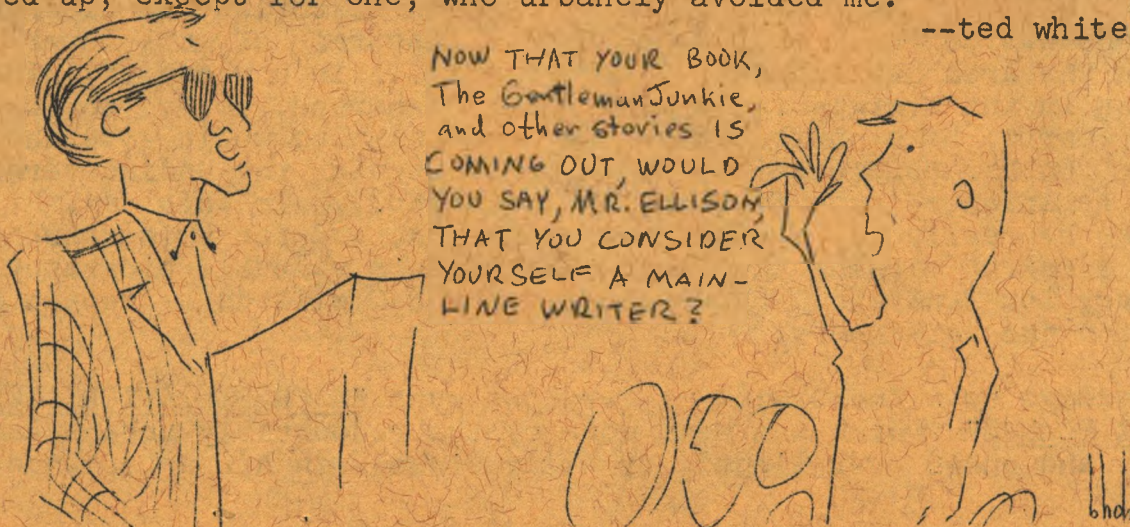 ed up, except for one, who urbanely avoided me.
--ted white
NOW THAT YOUR BOOK,
The Gentleman Junkie,
and other stories IS
COMING OUT, WOULD
YOU SAY, MR. ELLISON,
THAT YOU CONSIDER
YOURSELF A MAIN-
LINE WRITER?
bhd